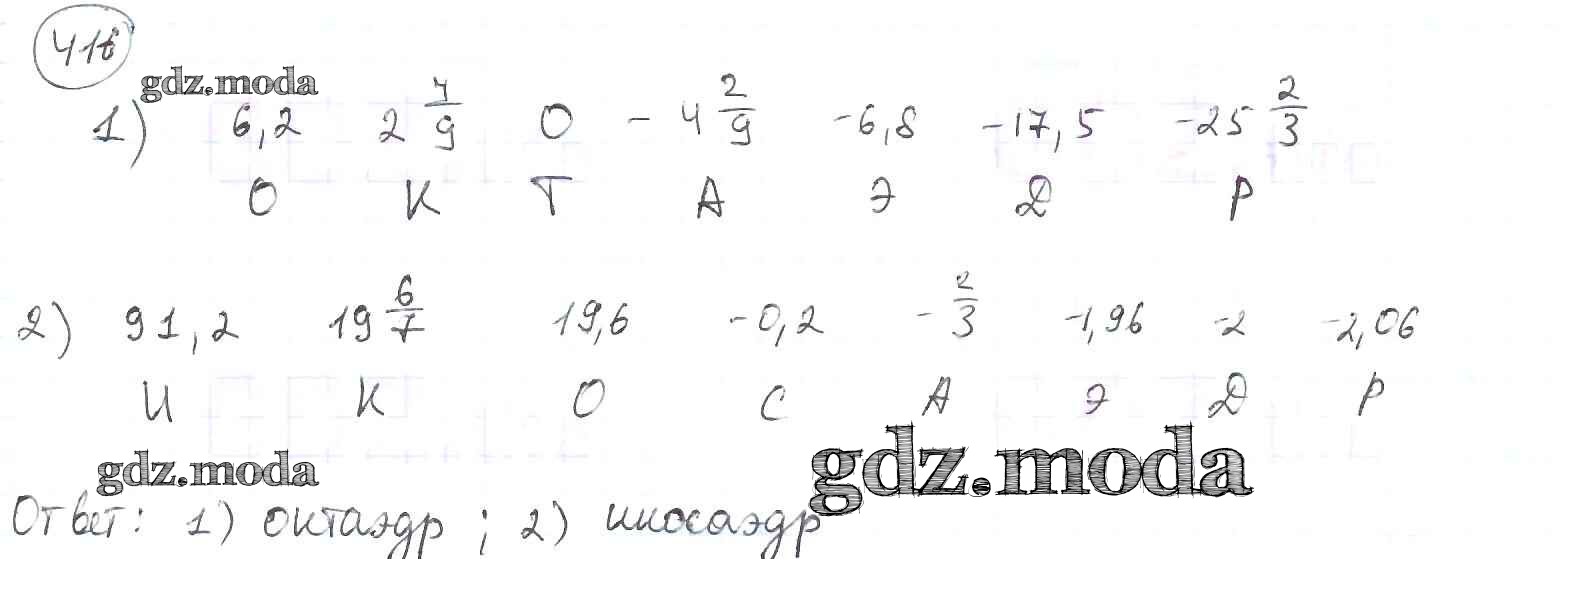 416
gdz.moda
1) 6,2 2 4/9 0 - 4 2/9 -6,8 -17,5 -25 2/3
О К Т А Э Д Р
2) 91,2 19 6/7 19,6 -0,2 - 2/3 -1,96 -2 -2,06
И К О С А Э Д Р
gdz.moda
gdz.moda
Ответ: 1) октаэдр ; 2) икосаэдр